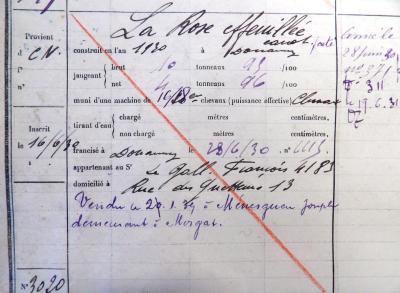 La Rose effeuillée
canot
Provient
de CN.
construit en l'an 1930 à Douarnenez
jaugeant
brut 10 tonneaux 93 /100
net 4 tonneaux 96 /100
muni d'une machine de chevaux (puissance effective)
tirant d'eau
chargé mètres centimètres.
non chargé mètres centimètres.
Inscrit
le 16/6/30
francisé à Douarnenez le 28/6/30. n°
appartenant au Sr Le Gall François 4183
domicilié à Rue des Guetteurs 13
Vendu le 29.1.39 à Ménesguen Joseph
demeurant à Morgat.
N° 3020
28 juin 30
n° 371
F° 311
le 19.6.31